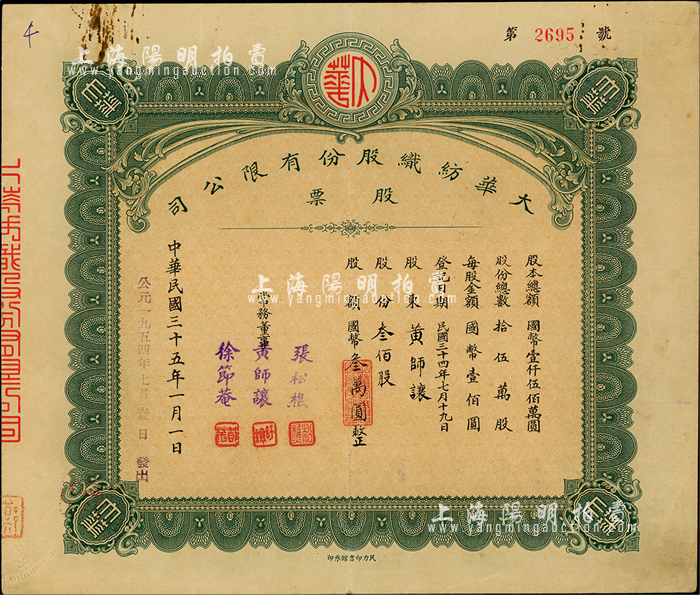 第 2695 號
大華
大華紡織股份有限公司
股票
股本總額 國幣壹仟伍佰萬圓
股份總數 拾伍萬股
每股金額 國幣壹佰圓
登記日期 民國三十四年七月十九日
股東 黃師讓
股份 叁佰股
股額 國幣叁萬圓整
常務董事
張松樵
黃師讓
徐節菴
中華民國三十五年一月一日
公元一九五四年七月壹日 發出
民力印書館承印
上海陽明拍賣
www.yangmingauction.com
上海陽明拍賣
www.yangmingauction.com
上海陽明拍賣
www.yangmingauction.com